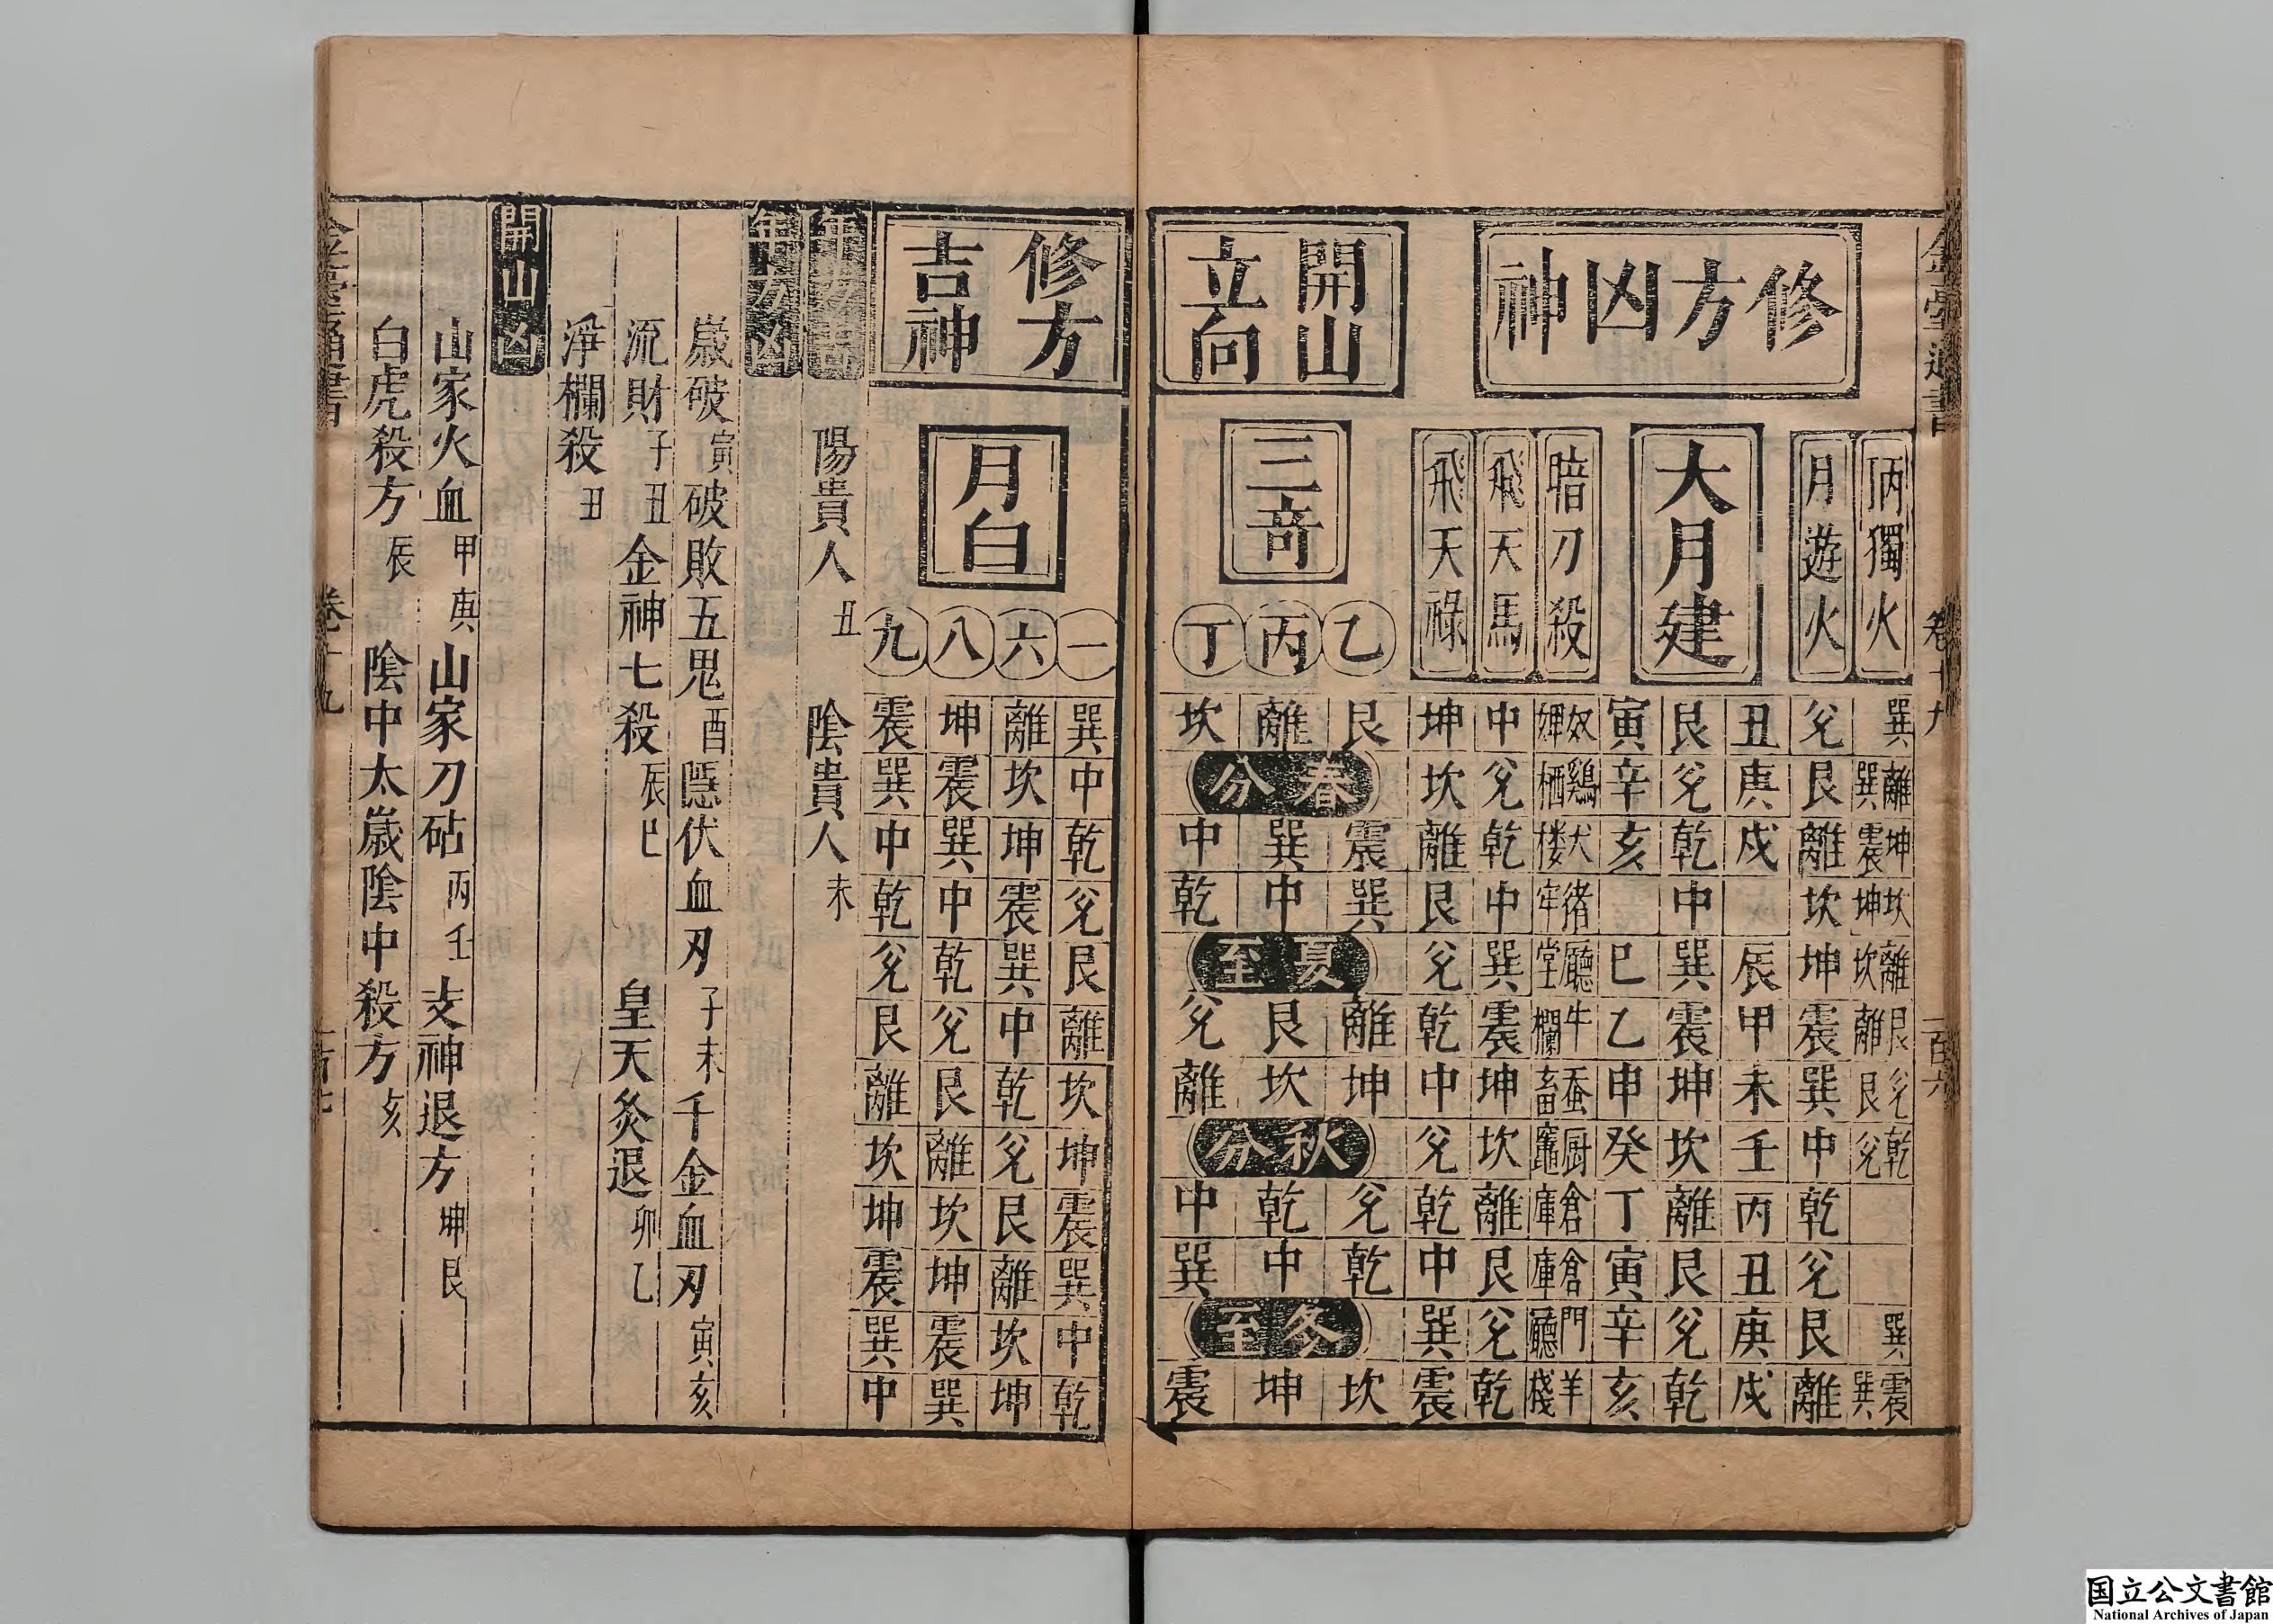 卷十九
一百六
修方凶神
丙獨火 巽 離巽 坤震 坎坤 離坎 艮離 兊艮 乾兊 巽 震巽
月遊火 兊 艮 離 坎 坤 震 巽 中 乾 兊 艮 離
大月建
丑 庚 戌 辰 甲 未 壬 丙 丑 庚 戌
艮 兊 乾 中 巽 震 坤 坎 離 艮 兊 乾
寅 辛 亥 巳 乙 申 癸 丁 寅 辛 亥
暗刀殺 奴婢 鷄栖 犬楼 猪牢 廳堂 牛欄 蚕畜 厨竈 倉庫 倉庫 門廳 羊棧
飛天馬 中 兊 乾 中 巽 震 坤 坎 離 艮 兊 乾
飛天祿 坤 坎 離 艮 兊 乾 中 兊 乾 中 巽 震
開山立向
三奇
乙 艮 震 巽 離 坤 兊 乾 坎
丙 離 巽 中 艮 坎 乾 中 坤
丁 坎 中 乾 兊 離 中 巽 震
春分
夏至
秋分
冬至
修方吉神
月白
一 巽 中 乾 兊 艮 離 坎 坤 震 巽 中 乾
六 離 坎 坤 震 巽 中 乾 兊 艮 離 坎 坤
八 坤 震 巽 中 乾 兊 艮 離 坎 坤 震 巽
九 震 巽 中 乾 兊 艮 離 坎 坤 震 巽 中
陽貴人 丑 陰貴人 未
歲破 寅 破敗五鬼 酉 隱伏血刃 子未 千金血刃 寅亥
流財 子丑 金神七殺 辰巳 皇天炙退 卯乙
淨欄殺 丑
開山凶
山家火血 甲庚 山家刀砧 丙壬 支神退方 坤艮
白虎殺方 辰 陰中太歲陰中殺方 亥
卷十九
国立公文書館
National Archives of Japan